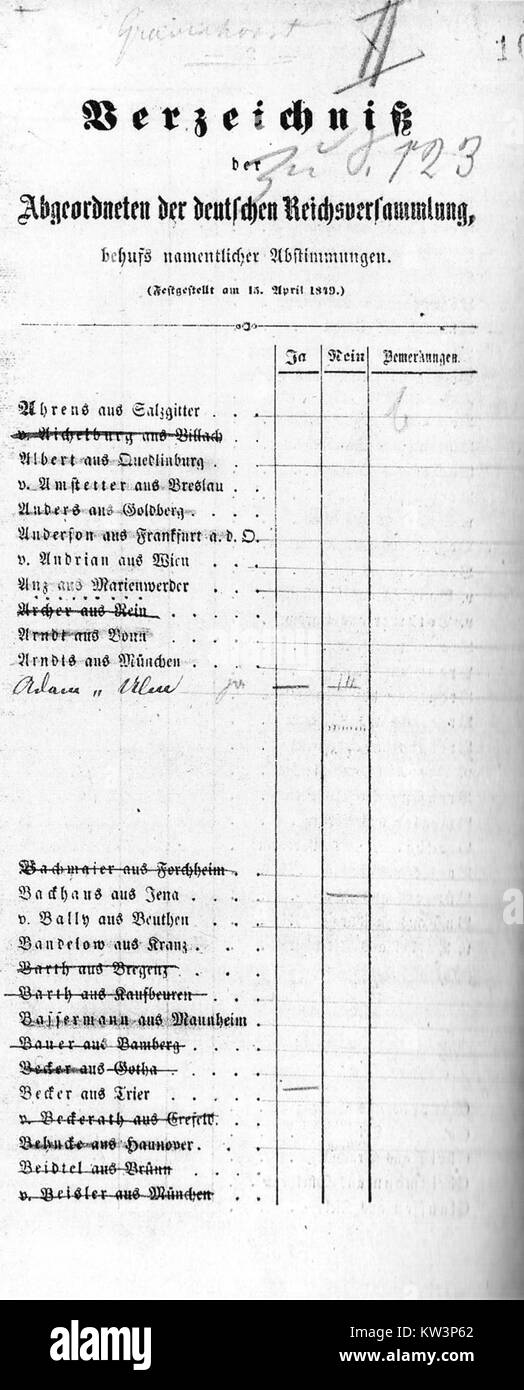 Gravenhorst II 10
Verzeichniß
der
zu S. 123
Abgeordneten der deutschen Reichsversammlung,
behufs namentlicher Abstimmungen.
(Festgestellt am 15. April 1849.)
Ja Nein Bemerkungen.
Ahrens aus Salzgitter . . .
v. Aichelburg aus Villach
Albert aus Quedlinburg . . .
v. Amstetter aus Breslau . .
Anders aus Goldberg . . . .
Anderson aus Frankfurt a. d. O.
v. Andrian aus Wien . . .
Anz aus Marienwerder . . .
Archer aus Rein . . . . .
Arndt aus Bonn . . . . .
Arndts aus München . . . .
Adam „ Ulm
Bachmaier aus Forchheim . .
Backhaus aus Jena . . . .
v. Bally aus Beuthen . . .
Bandelow aus Kranz . . . .
Barth aus Bregenz . . . .
Barth aus Kaufbeuren . . .
Bassermann aus Mannheim .
Bauer aus Bamberg . . . .
Becker aus Gotha . . . . .
Becker aus Trier . . . . .
v. Beckerath aus Crefeld . . .
Behncke aus Hannover . . . .
Beidtel aus Brünn . . . .
v. Beisler aus München . . .
a
alamy stock photo
alamy
Image ID: KW3P62
www.alamy.com